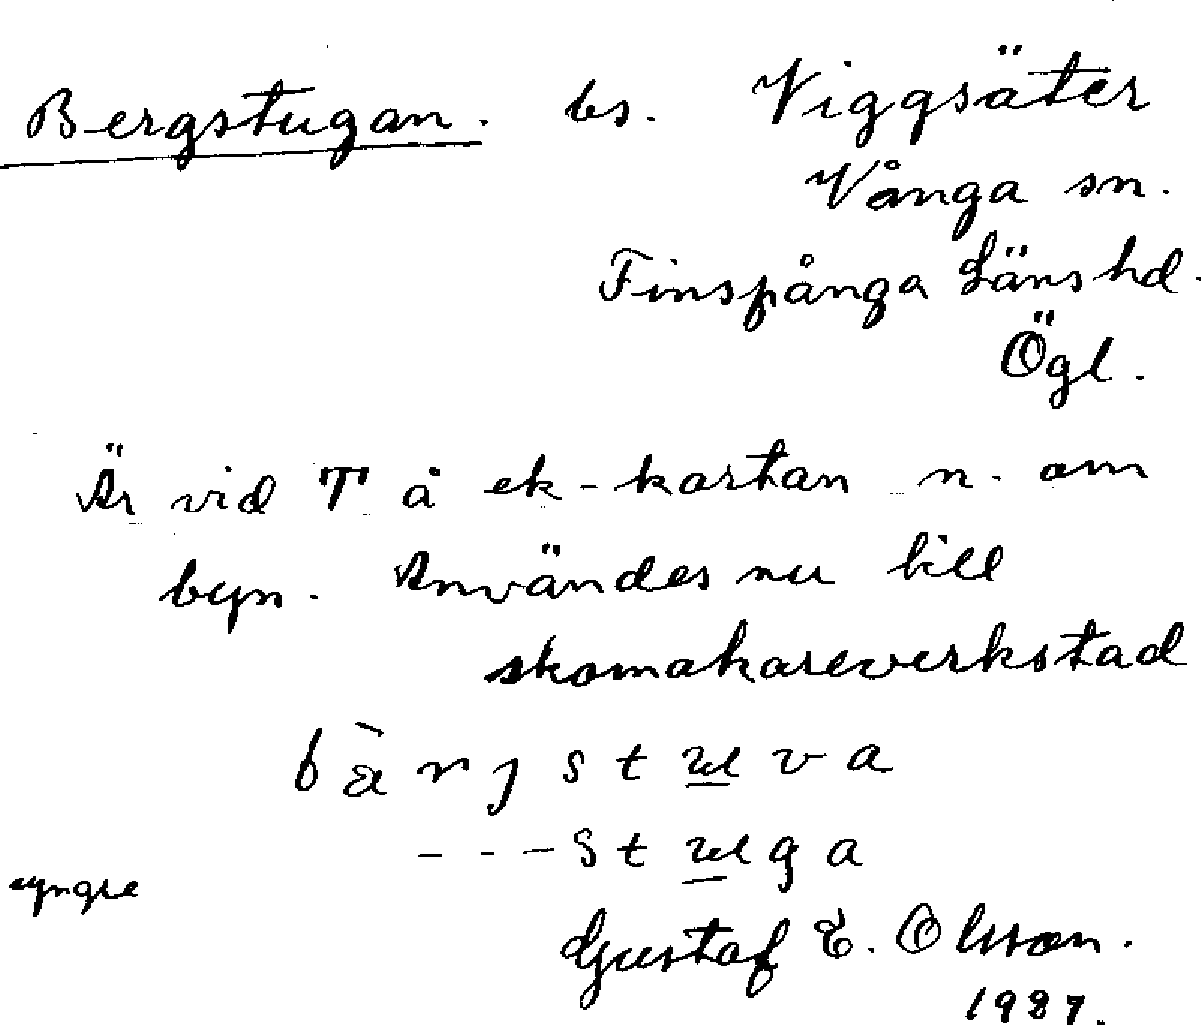 Bergstugan. bs. Viggsäter
Vånga sn.
Finspånga Länshd.
Ögl.
Är vid T å ek-kartan n. om
byn. Användes nu till
skomakareverkstad
bæ̀rjstuva
---stuga
yngre
Gustaf E. Olsson.